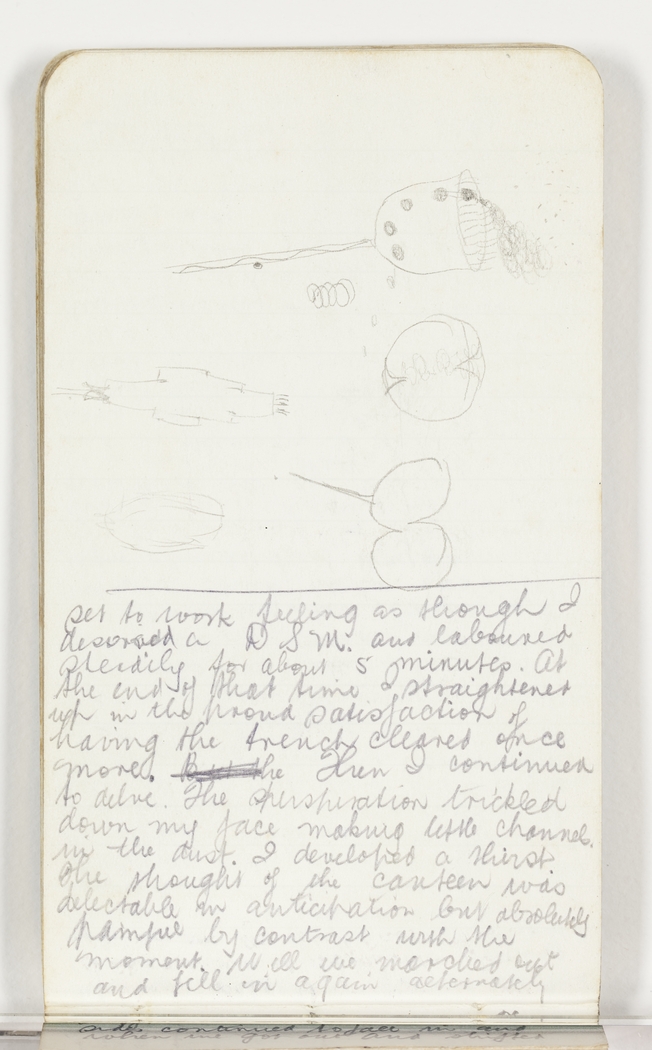 set to work feeling as though I
deserved a D S M. and laboured
steadily for about 5 minutes. At
the end of that time I straightened
up in the proud satisfaction of
having the trench cleared once
more. But the Then I continued
to delve. The sperspiration trickled
down my face making little channels.
in the dust. I developed a thirst
The thought of the canteen was
delectable in anticipation but absolutely
painful by contrast with the
moment. Well we marched out
and fell in again alternately
sides continued to fall in and
when we got out and